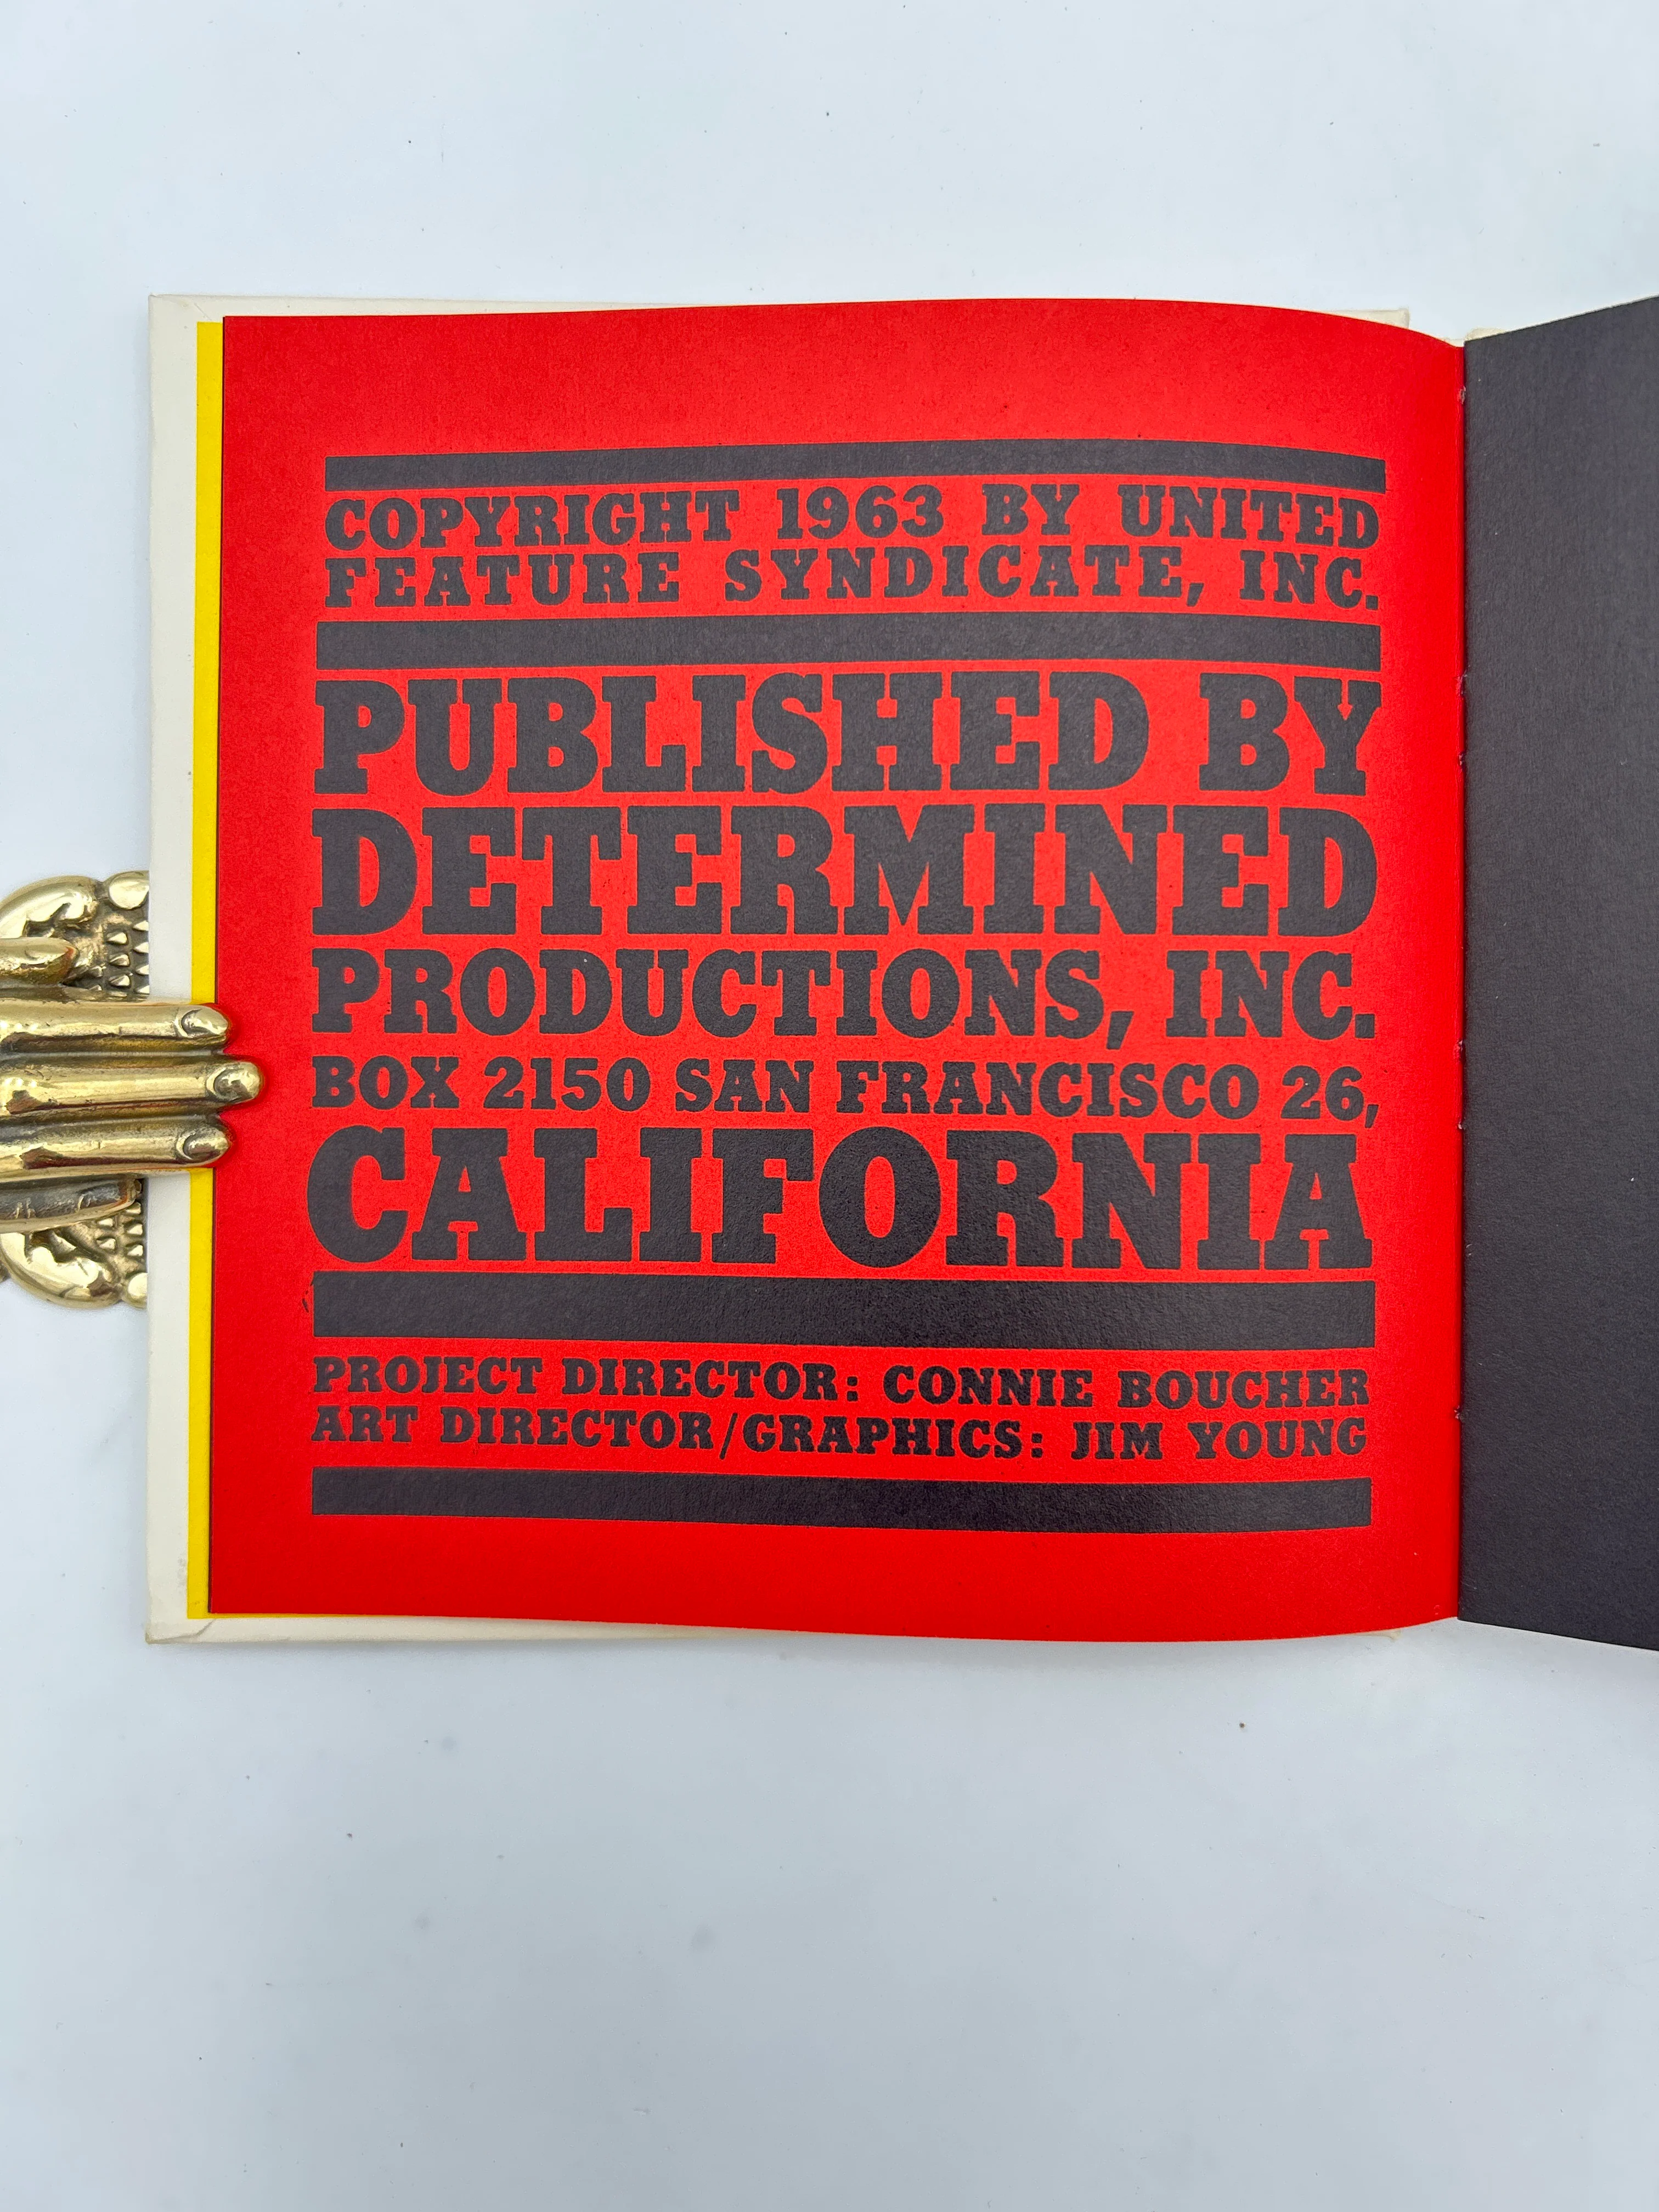 COPYRIGHT 1963 BY UNITED
FEATURE SYNDICATE, INC.
PUBLISHED BY
DETERMINED
PRODUCTIONS, INC.
BOX 2150 SAN FRANCISCO 26,
CALIFORNIA
PROJECT DIRECTOR: CONNIE BOUCHER
ART DIRECTOR/GRAPHICS: JIM YOUNG